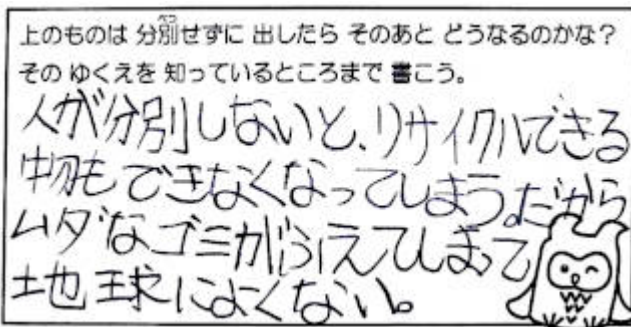 上のものは 分別せずに 出したら そのあと どうなるのかな？
その ゆくえを 知っているところまで 書こう。
人が分別しないと、リサイクルできる
物もできなくなってしまう。だから
ムダなゴミがふえてしまって
地球によくない。